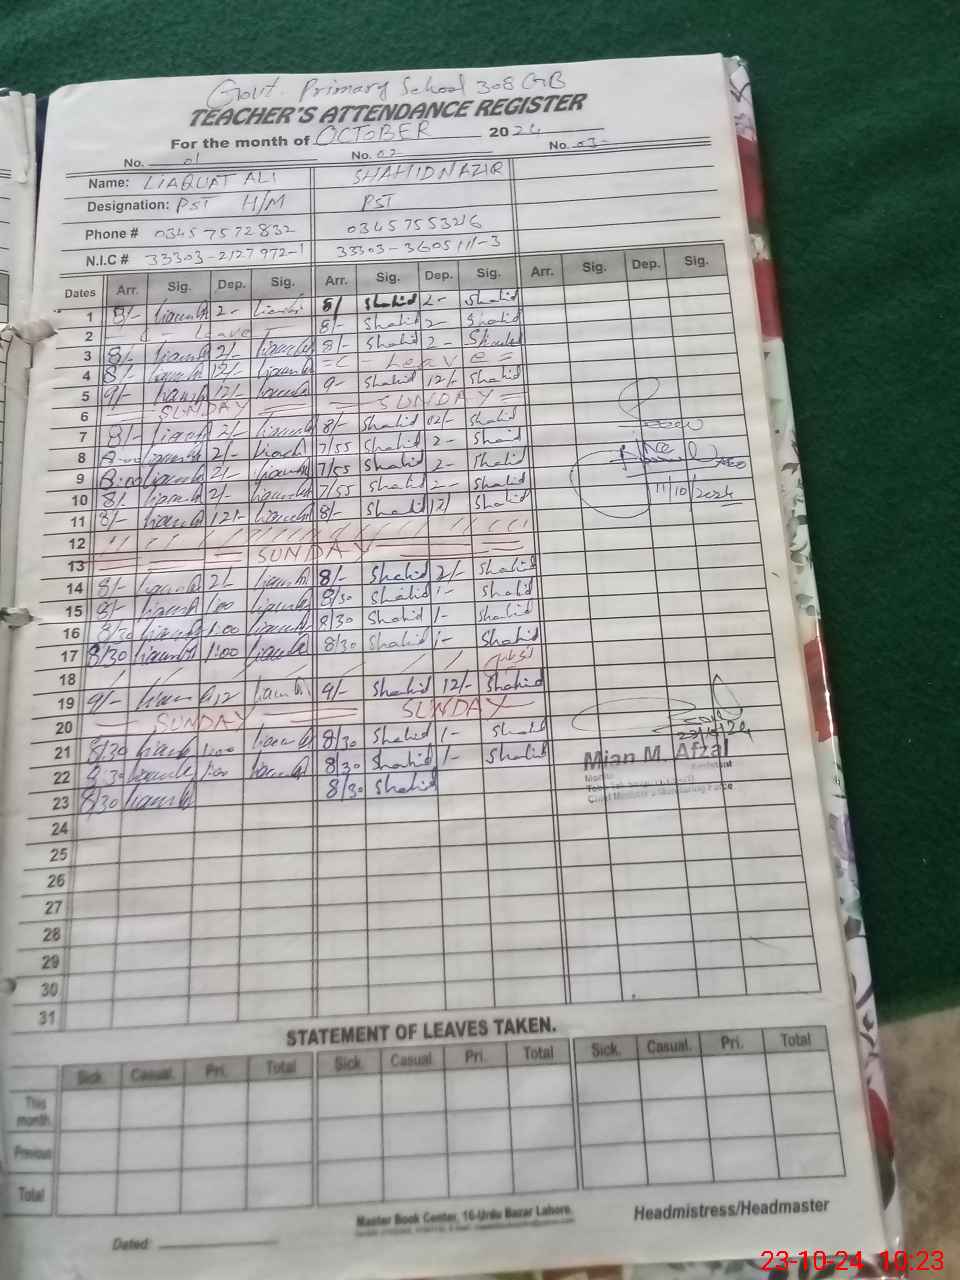 Govt. Primary School 308 GB
TEACHER'S ATTENDANCE REGISTER
For the month of OCTOBER 2024
No. 01 No. 02 No. 03
Name: LIAQUAT ALI SHAHID NAZIR
Designation: PST H/M PST
Phone # 0345 7572832 0345 7553216
N.I.C # 33303-2127972-1 33303-3605111-3
Dates Arr. Sig. Dep. Sig. Arr. Sig. Dep. Sig. Arr. Sig. Dep. Sig.
1 8/- 2- 8/- Shahid 2- Shahid
2 C - Leave 8/- Shahid 2- Shahid
3 8/- 2/- 8/- Shahid 2- Shahid
4 8/- 12/- = C - Leave =
5 9/- 12/- 9- Shahid 12/- Shahid
6 SUNDAY SUNDAY
7 8/- 2/- 8/- Shahid 02/- Shahid
8 8:00 2/- 7/55 Shahid 2- Shahid
9 8:00 2/- 7/55 Shahid 2- Shahid
10 8/- 2/- 7/55 Shahid 2- Shahid
11 8/- 12/- 8/- Shahid 12/ Shahid
11/10/2024
12
13 SUNDAY
14 8/- 2/- 8/- Shahid 2/- Shahid
15 8/- 1:00 8/30 Shahid 1- Shahid
16 8/30 1:00 8/30 Shahid 1- Shahid
17 8/30 1:00 8/30 Shahid 1- Shahid
18
19 9/- 12 9/- Shahid 12/- Shahid
20 SUNDAY SUNDAY
21 8/30 1:00 8/30 Shahid 1- Shahid
22 8/30 1:00 8/30 Shahid 1- Shahid
Mian M. Afzal
23 8/30 8/30 Shahid
24
25
26
27
28
29
30
31
STATEMENT OF LEAVES TAKEN.
Sick. Casual. Pri. Total Sick. Casual. Pri. Total Sick. Casual. Pri. Total
This month.
Previous
Total
Master Book Center, 16-Urdu Bazar Lahore.
Headmistress/Headmaster
Dated:
23-10-24 10:23